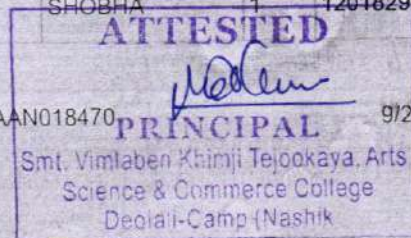 SHOBHA 1 1201829
ATTESTED
AAN018470 9/2
PRINCIPAL
Smt. Vimlaben Khimji Tejookaya, Arts
Science & Commerce College
Deolali-Camp (Nashik